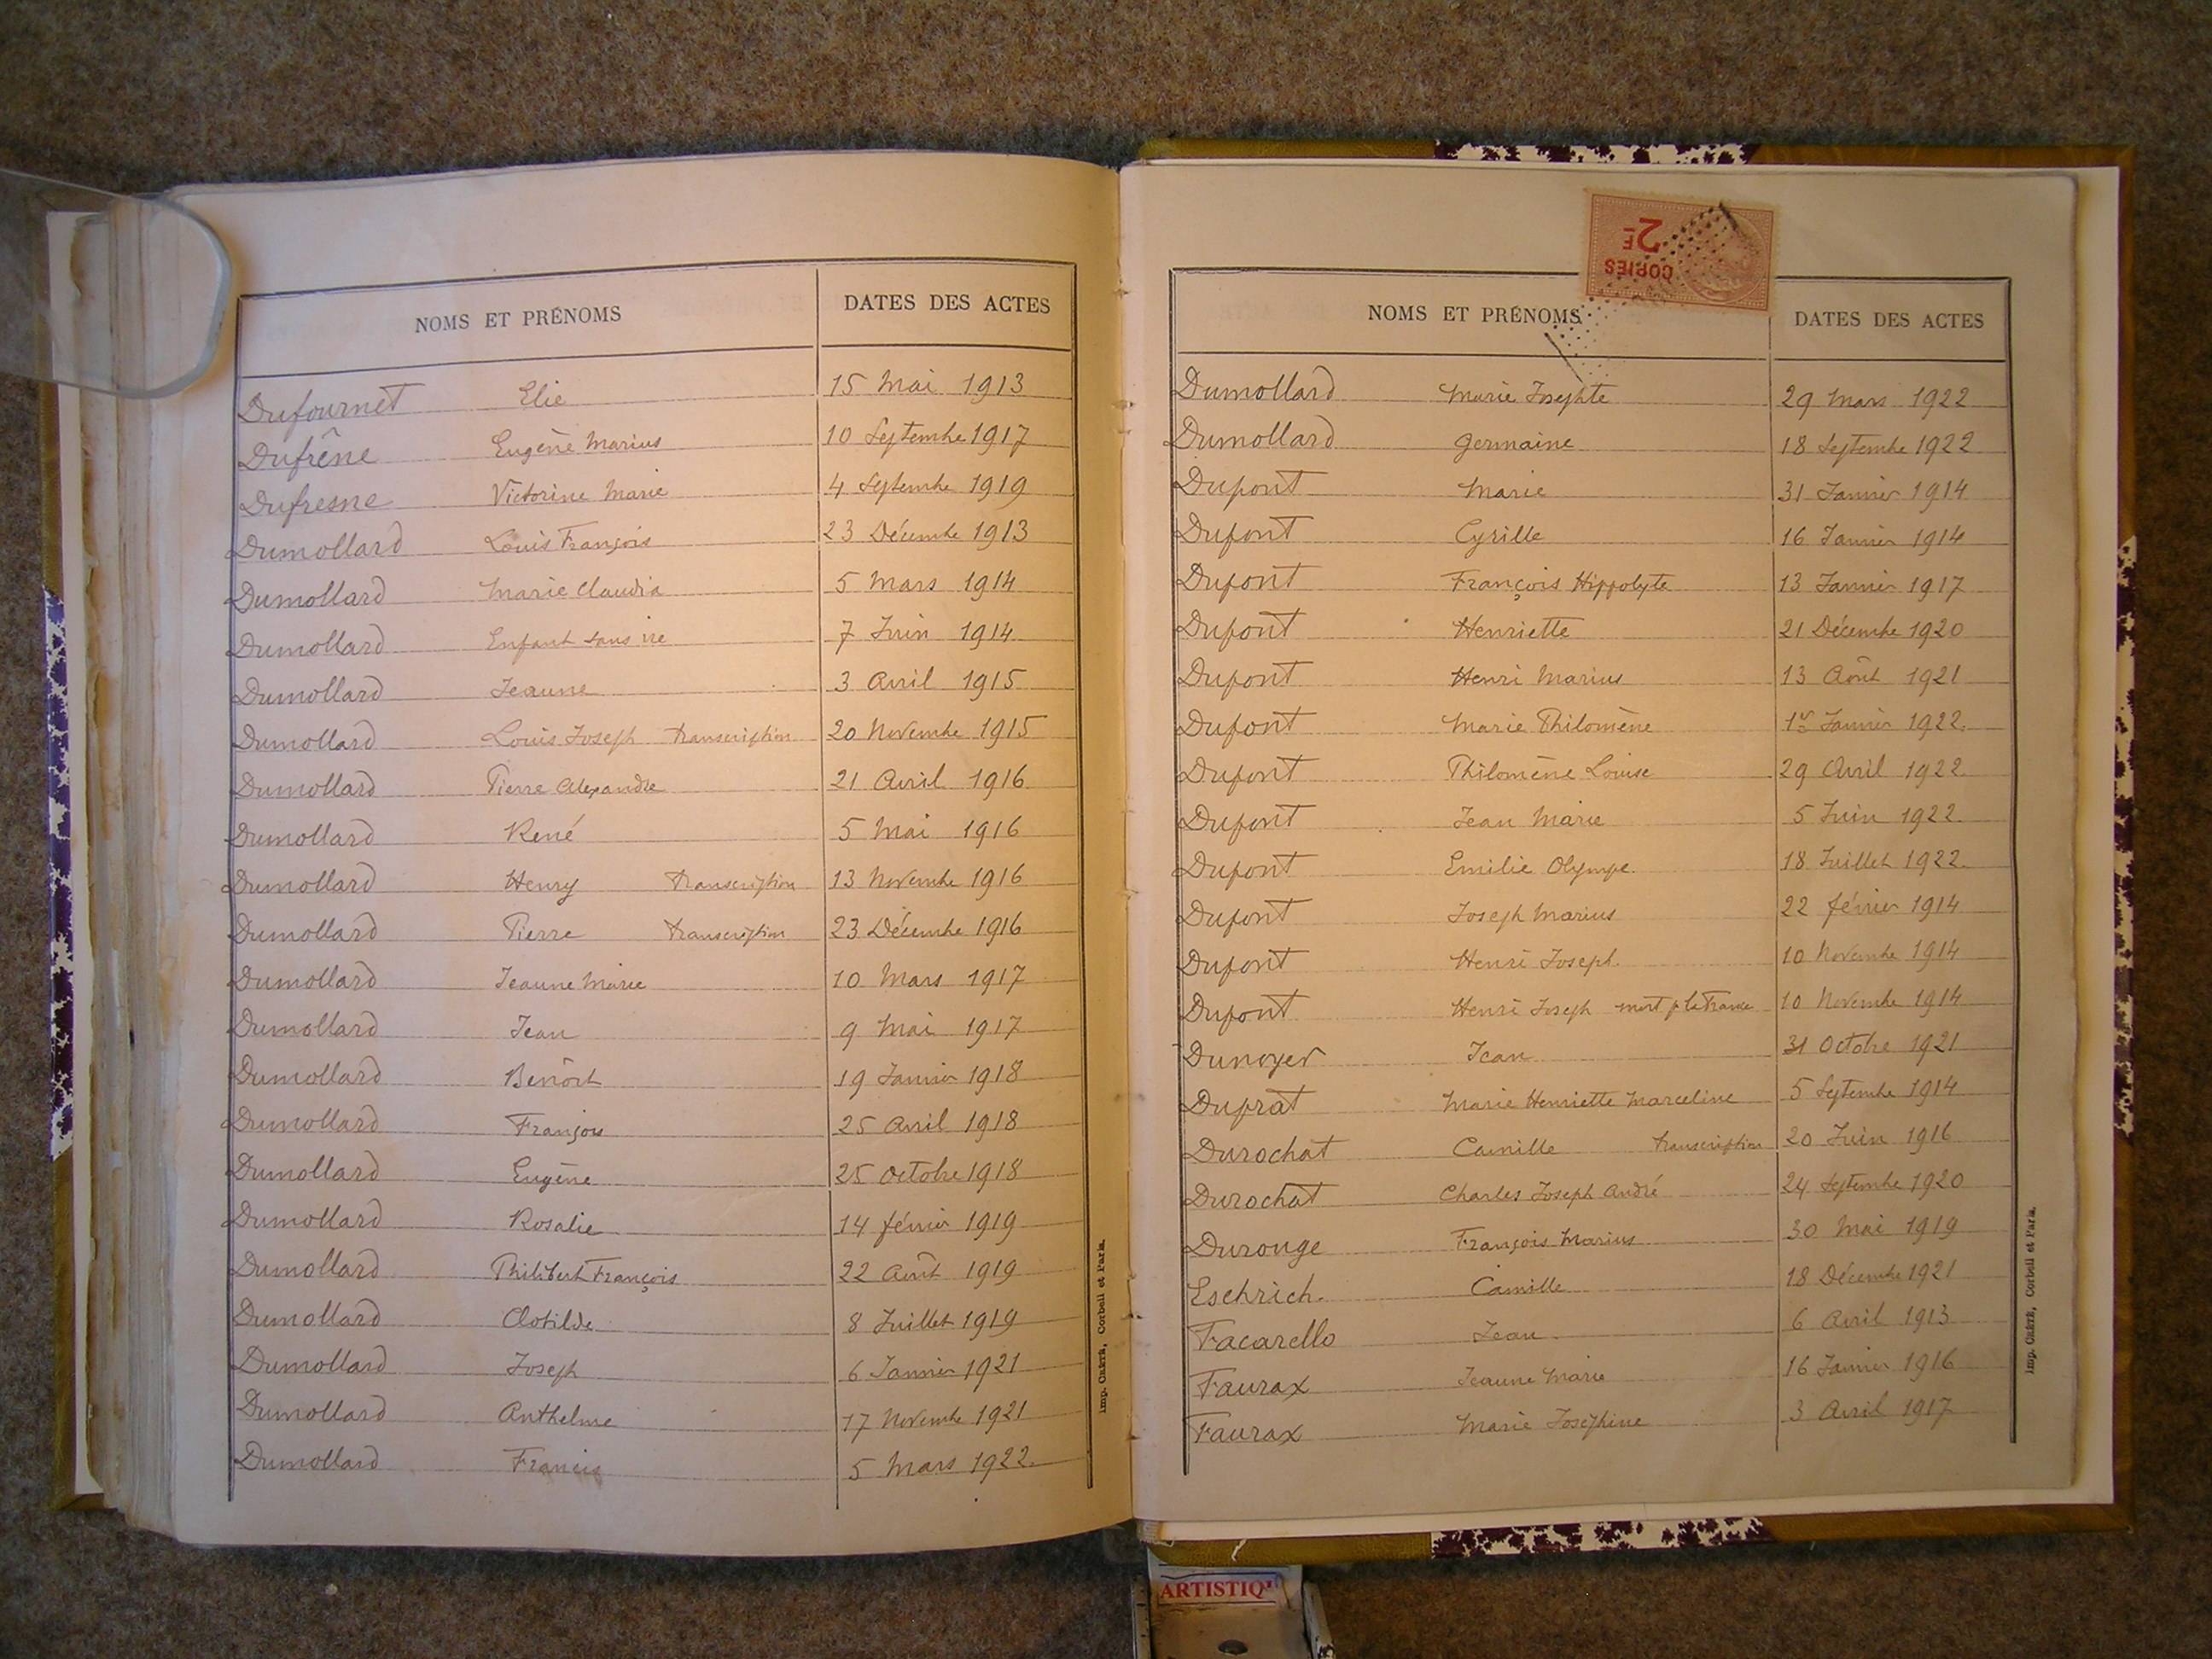 NOMS ET PRÉNOMS DATES DES ACTES
Dufournet Elie 15 Mai 1913
Dufrêne Eugène Marius 10 Septembre 1917
Dufresne Victorine Marie 4 Septembre 1919
Dumollard Louis François 23 Décembre 1913
Dumollard Marie Claudia 5 Mars 1914
Dumollard Enfant sans vie 7 Juin 1914
Dumollard Jeanne 3 Avril 1915
Dumollard Louis Joseph transcription 20 Novembre 1915
Dumollard Pierre Alexandre 21 Avril 1916
Dumollard René 5 Mai 1916
Dumollard Henry transcription 13 Novembre 1916
Dumollard Pierre transcription 23 Décembre 1916
Dumollard Jeanne Marie 10 Mars 1917
Dumollard Jean 9 Mai 1917
Dumollard Benoît 19 Janvier 1918
Dumollard François 25 Avril 1918
Dumollard Eugène 25 Octobre 1918
Dumollard Rosalie 14 février 1919
Dumollard Philibert François 22 Août 1919
Dumollard Clotilde 8 Juillet 1919
Dumollard Joseph 6 Janvier 1921
Dumollard Anthelme 17 Novembre 1921
Dumollard Francis 5 Mars 1922.
Imp. CRÉTÉ, Corbeil et Paris.
2F
COPIES
NOMS ET PRÉNOMS DATES DES ACTES
Dumollard Marie Josephte 29 Mars 1922
Dumollard Germaine 18 Septembre 1922
Dupont Marie 31 Janvier 1914
Dupont Cyrille 16 Janvier 1914
Dupont François Hippolyte 13 Janvier 1917
Dupont Henriette 21 Décembre 1920
Dupont Henri Marius 13 Août 1921
Dupont Marie Philomène 1er Janvier 1922.
Dupont Philomène Louise 29 Avril 1922.
Dupont Jean Marie 5 Juin 1922.
Dupont Emilie Olympe. 18 Juillet 1922.
Dupont Joseph Marius 22 février 1914
Dupont Henri Joseph. 10 Novembre 1914
Dupont Henri Joseph mort p la France 10 Novembre 1914
Dunoyer Jean 31 Octobre 1921
Duprat Marie Henriette Marceline 5 Septembre 1914
Durochat Camille transcription 20 Juin 1916
Durochat Charles Joseph André 24 Septembre 1920
Durouge François Marius 30 Mai 1919
Eschrich. Camille 18 Décembre 1921
Facarello Jean 6 Avril 1913
Faurax Jeanne Marie 16 Janvier 1916
Faurax Marie Joséphine 3 Avril 1917
Imp. CRÉTÉ, Corbeil et Paris.
ARTISTIQ